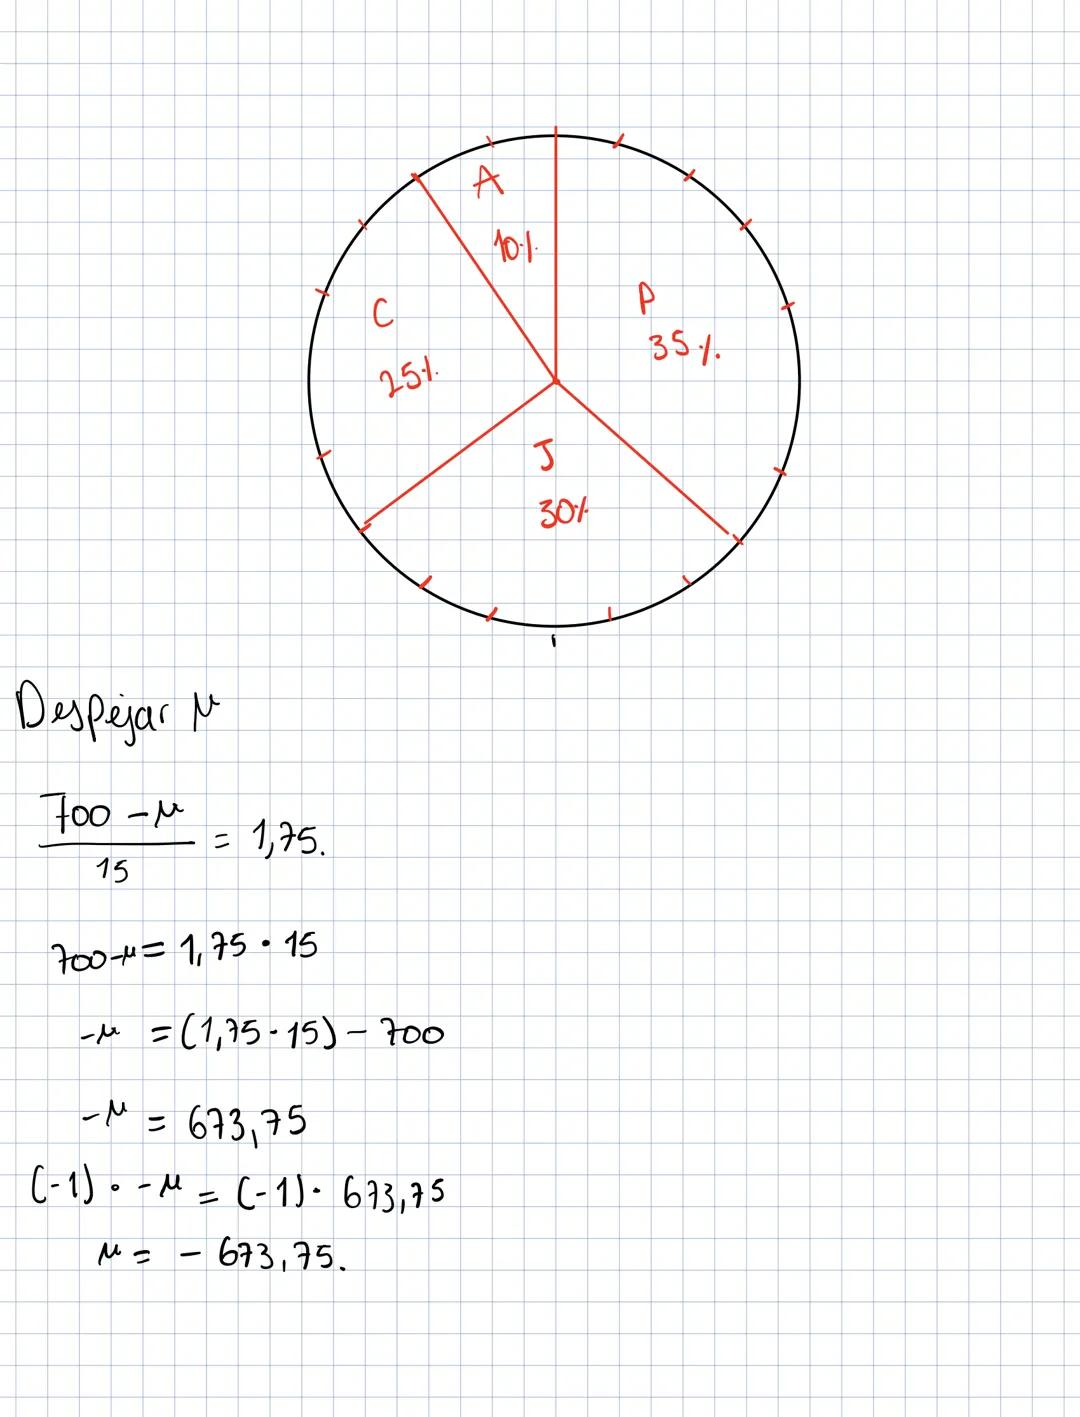 A
10%
P
35%.
C
25%.
J
30%
Despejar μ
700 - μ
─────── = 1,75.
15
700-μ = 1,75 · 15
-μ = (1,75 · 15) - 700
-μ = 673,75
(-1) · -μ = (-1) · 673,75
μ = - 673,75.